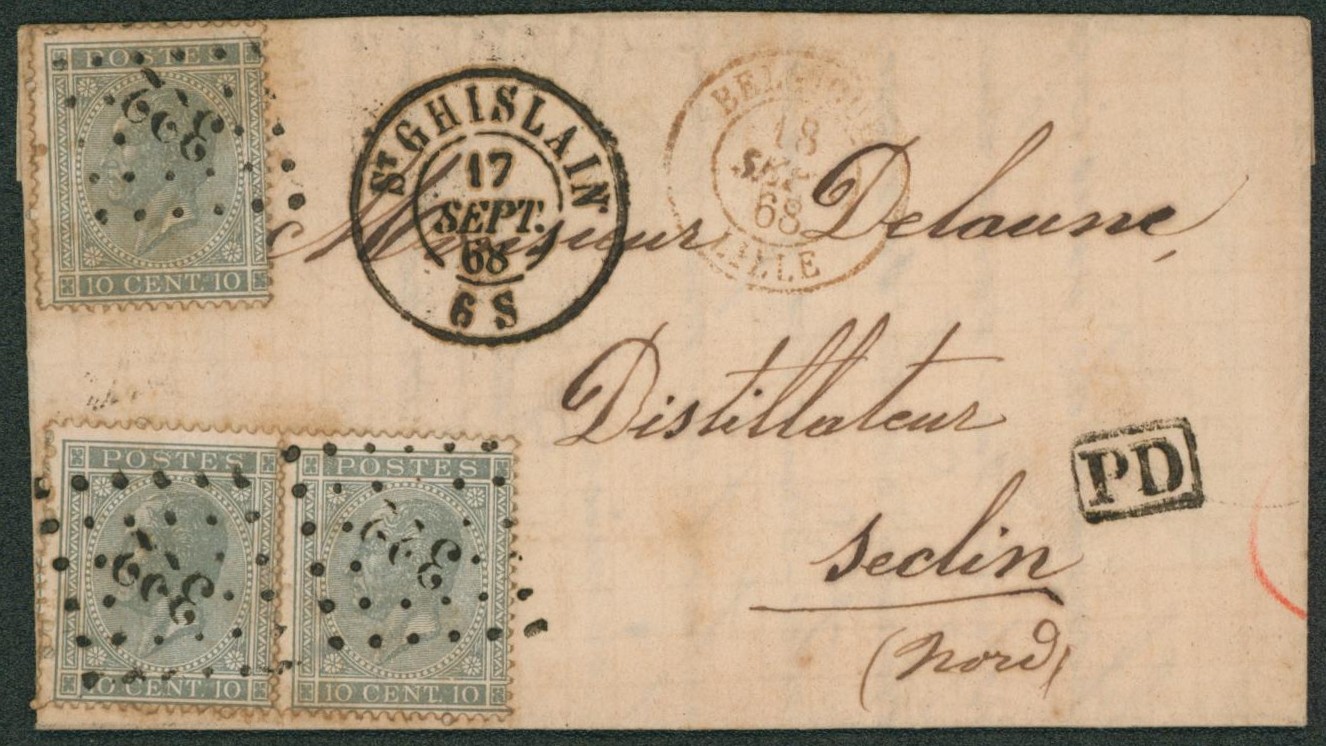 POSTES
10 CENT. 10
ST GHISLAIN
17
SEPT.
68
6 S
BELGIQUE
18
SEPT
68
LILLE
Monsieur Delaune,
Distillateur
Seclin
(Nord)
PD
POSTES
10 CENT. 10
POSTES
10 CENT. 10